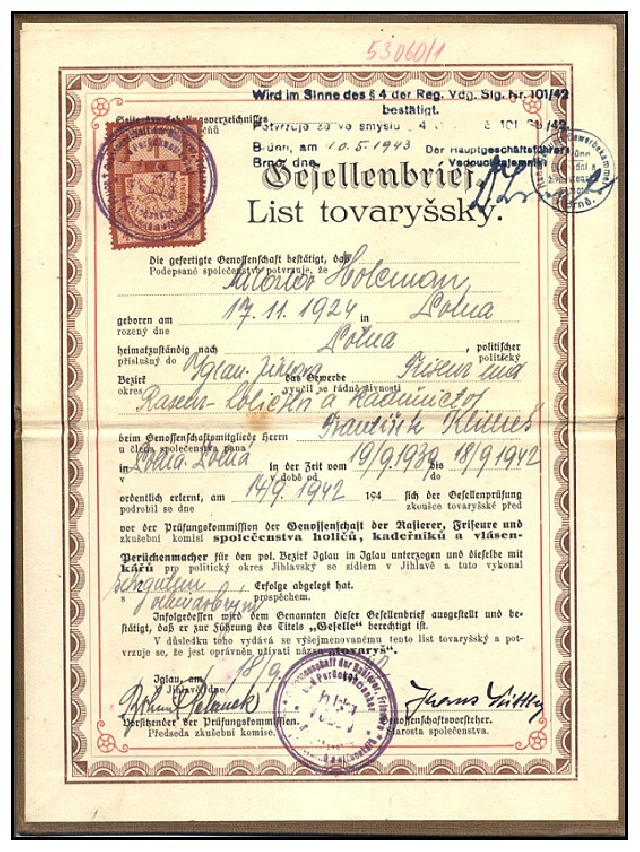 53060/1
Wird im Sinne des § 4 der Reg. Vdg. Slg. Nr. 101/42
bestätigt.
Potvrzuje se ve smyslu 4 101 42
Brünn, am 10.5.1943 Der Hauptgeschäftsführer
Brno, dne Vedoucí tajemník
Gesellenbrief.
List tovaryšský.
Die gefertigte Genossenschaft bestätigt, daß
Podepsané společenstvo potvrzuje, že
Miloslav Holcman
geboren am 17.11.1924 in Polna
rozený dne v
heimatzuständig nach Polna, politischer
příslušný do politický
Bezirk Iglau Jihlava das Gewerbe Friseur und
okres vyučil se řádně živnosti
Raseur holičství a kadeřnictví
beim Genossenschaftsmitgliede Herrn František Klimeš
u člena společenstva pana
in Polna. Polná in der Zeit vom 19/9.1939 bis 18/9.1942
v v době od do
ordentlich erlernt, am 14/9. 1942 194 sich der Gesellenprüfung
podrobil se dne zkoušce tovaryšské před
vor der Prüfungskommission der Genossenschaft der Rasierer, Friseure und
zkušební komisí společenstva holičů, kadeřníků a vlásen-
Perückenmacher für den pol. Bezirk Iglau in Iglau unterzogen und dieselbe mit
kářů pro politický okres Jihlavský se sídlem v Jihlavě a tuto vykonal
sehr gutem Erfolge abgelegt hat.
s prospěchem.
Infolgedessen wird dem Genannten dieser Gesellenbrief ausgestellt und be-
stätigt, daß er zur Führung des Titels „Geselle“ berechtigt ist.
V důsledku toho vydává se výšejmenovanému tento list tovaryšský a pot-
vrzuje se, že jest oprávněn užívati názvu „tovaryš“.
Iglau, am 18/9.
V Jihlavě dne
Vorsitzender der Prüfungskommission. Genossenschaftsvorsteher.
Předseda zkušební komise. Starosta společenstva.